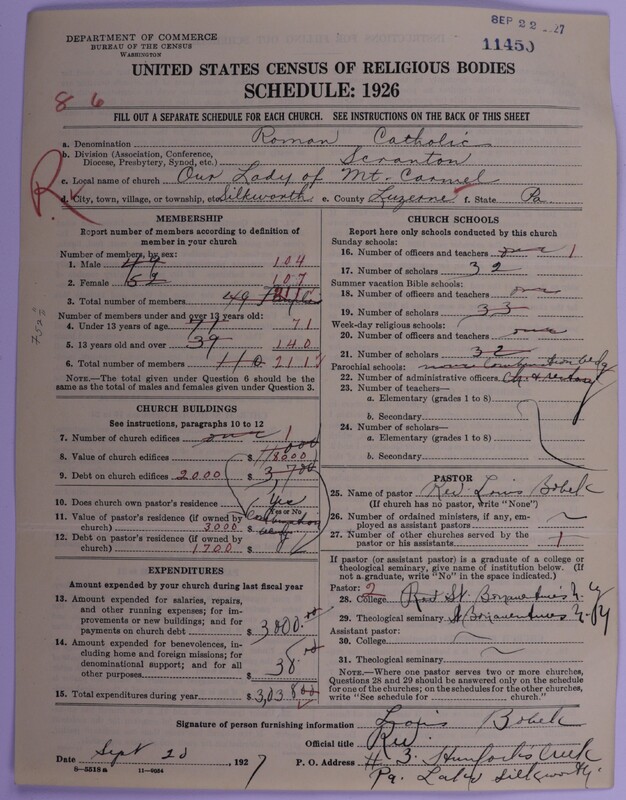 SEP 22 1927
11450
DEPARTMENT OF COMMERCE
BUREAU OF THE CENSUS
WASHINGTON
UNITED STATES CENSUS OF RELIGIOUS BODIES
SCHEDULE: 1926
8 6
FILL OUT A SEPARATE SCHEDULE FOR EACH CHURCH. SEE INSTRUCTIONS ON THE BACK OF THIS SHEET
a. Denomination Roman Catholic
b. Division (Association, Conference, Diocese, Presbytery, Synod, etc.) Scranton
c. Local name of church Our Lady of Mt. Carmel
d. City, town, village, or township, etc. Silkworth e. County Luzerne f. State Pa
MEMBERSHIP
Report number of members according to definition of
member in your church
Number of members, by sex:
1. Male 49 104
2. Female 62 107
3. Total number of members 49
Number of members under and over 13 years old:
4. Under 13 years of age 71 71
5. 13 years old and over 39 140
6. Total number of members 110 211
NOTE.—The total given under Question 6 should be
the same as the total of males and females given under Question 3.
CHURCH BUILDINGS
See instructions, paragraphs 10 to 12
7. Number of church edifices one 1
8. Value of church edifices $
9. Debt on church edifices 2000 $ 3700
10. Does church own pastor's residence? Yes
Yes or No
11. Value of pastor's residence (if owned by
church) 3000 $
12. Debt on pastor's residence (if owned by
church) 1700 $
EXPENDITURES
Amount expended by your church during last fiscal year
13. Amount expended for salaries, repairs,
and other running expenses; for im-
provements or new buildings; and for
payments on church debt $ 3000.00
14. Amount expended for benevolences, in-
cluding home and foreign missions; for
denominational support; and for all
other purposes $ 38.00
15. Total expenditures during year $ 3,038.00
CHURCH SCHOOLS
Report here only schools conducted by this church
Sunday schools:
16. Number of officers and teachers one 1
17. Number of scholars 32
Summer vacation Bible schools:
18. Number of officers and teachers one
19. Number of scholars 33
Week-day religious schools:
20. Number of officers and teachers one
21. Number of scholars 32
Parochial schools:
22. Number of administrative officers
23. Number of teachers—
a. Elementary (grades 1 to 8)
b. Secondary
24. Number of scholars—
a. Elementary (grades 1 to 8)
b. Secondary
PASTOR
25. Name of pastor Rev Louis Bobek
(If church has no pastor, write "None")
26. Number of ordained ministers, if any, em-
ployed as assistant pastors
27. Number of other churches served by the
pastor or his assistants 1
If pastor (or assistant pastor) is a graduate of a college or
theological seminary, give name of institution below. (If
not a graduate, write "No" in the space indicated.)
Pastor: 2
28. College St. Bonaventure's N.Y
29. Theological seminary St Bonaventure's N.Y
Assistant pastor:
30. College
31. Theological seminary
NOTE.—Where one pastor serves two or more churches,
Questions 28 and 29 should be answered only on the schedule
for one of the churches; on the schedules for the other churches,
write "See schedule for church."
Signature of person furnishing information Louis Bobek
Official title Rev.
Date Sept 20, 1927 P. O. Address # 3. Hunlock's Creek
Pa. Lake Silkworth
8—5518 a 11—9034